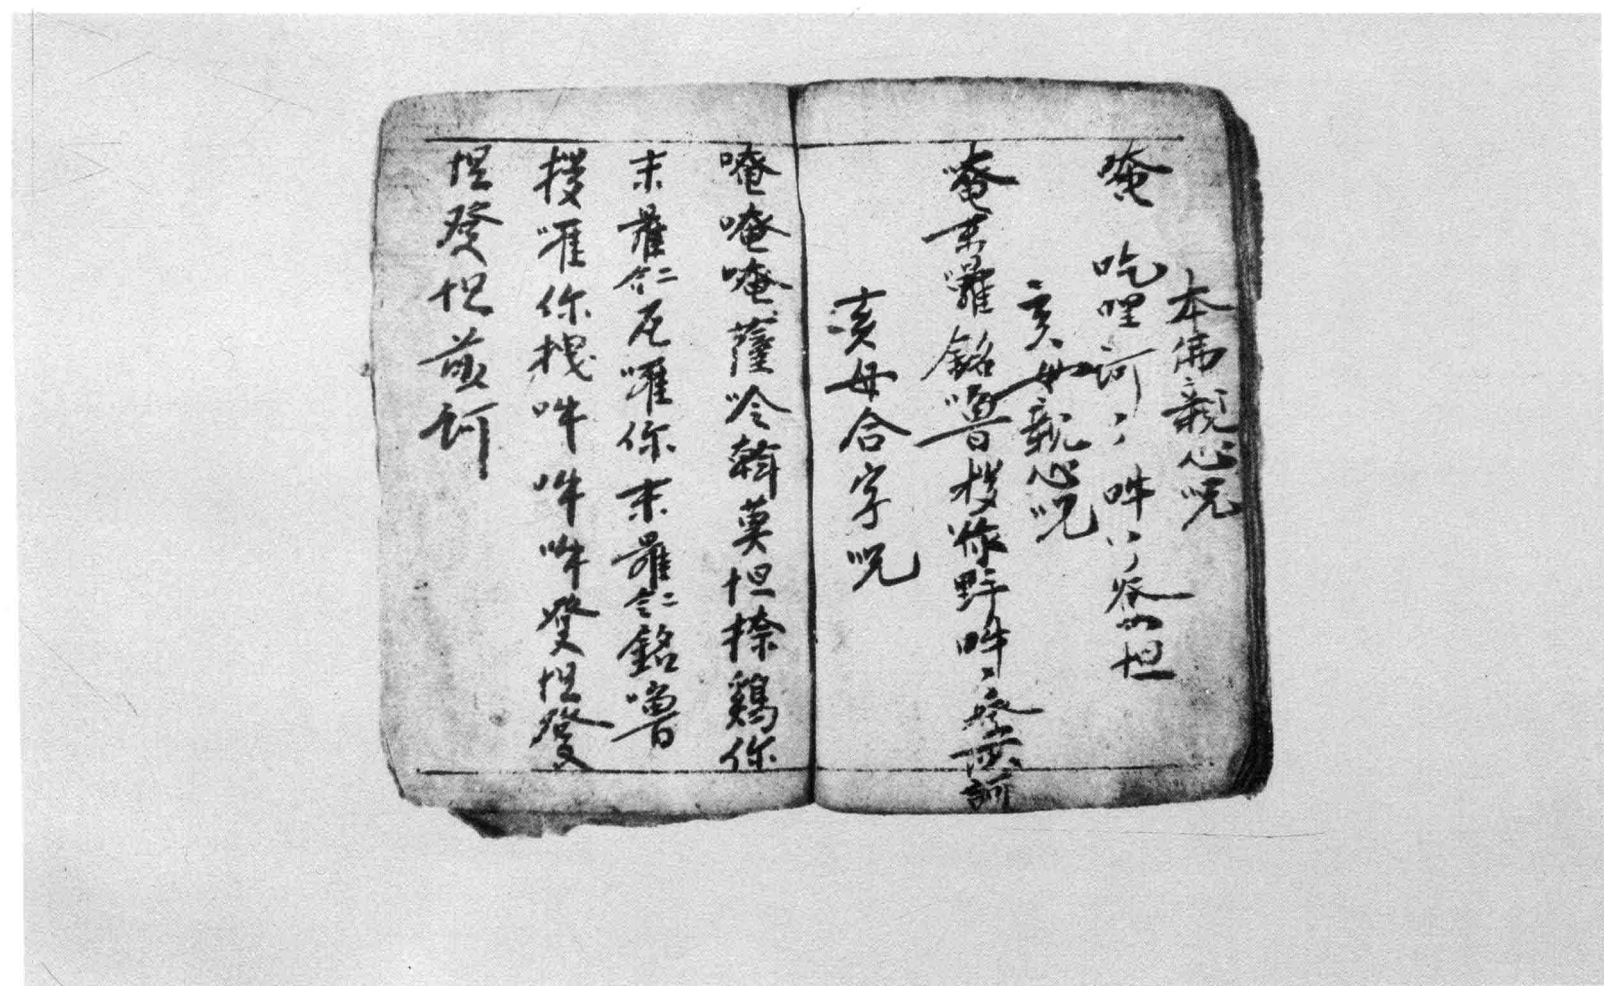 本佛親心呪
唵 吃哩訶ミ吽ミミ癹怛
亥母親心呪
唵末囉銘嚕授你野吽ミ癹莎訶
亥母合字呪
唵唵唵薩冷斡莫怛捺鷄你
末羅仁尼囉你末羅仁銘嚕
授囉你拽吽吽吽癹怛癹
怛癹怛莎訶